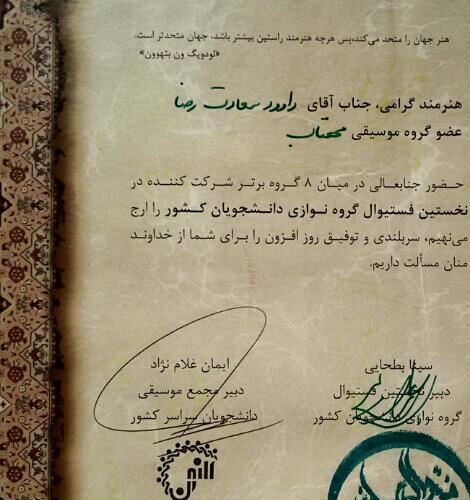 هنر جهان را متحد می‌کند،پس هرچه هنرمند راستین بیشتر باشد، جهان متحدتر است.
«لودویگ ون بتهوون»
هنرمند گرامی، جناب آقای داوود سعادت رضا
عضو گروه موسیقی مهتاب
حضور جنابعالی در میان ۸ گروه برتر شرکت کننده در
نخستین فستیوال گروه نوازی دانشجویان کشور را ارج
می‌نهیم، سربلندی و توفیق روز افزون را برای شما از خداوند
منان مسألت داریم.
سینا بطحایی
دبیر نخستین فستیوال
گروه نوازی دانشجویان کشور
ایمان غلام نژاد
دبیر مجمع موسیقی
دانشجویان سراسر کشور